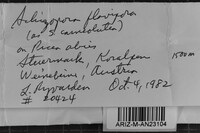 Schizopora flavipora
(as S. carneolutea)
on Picea abies
Steiermark, Koralpen 1500m
Weinebene, Austria
L. Ryvarden Oct. 4, 1982
# 20424
ARIZ-M-AN23104